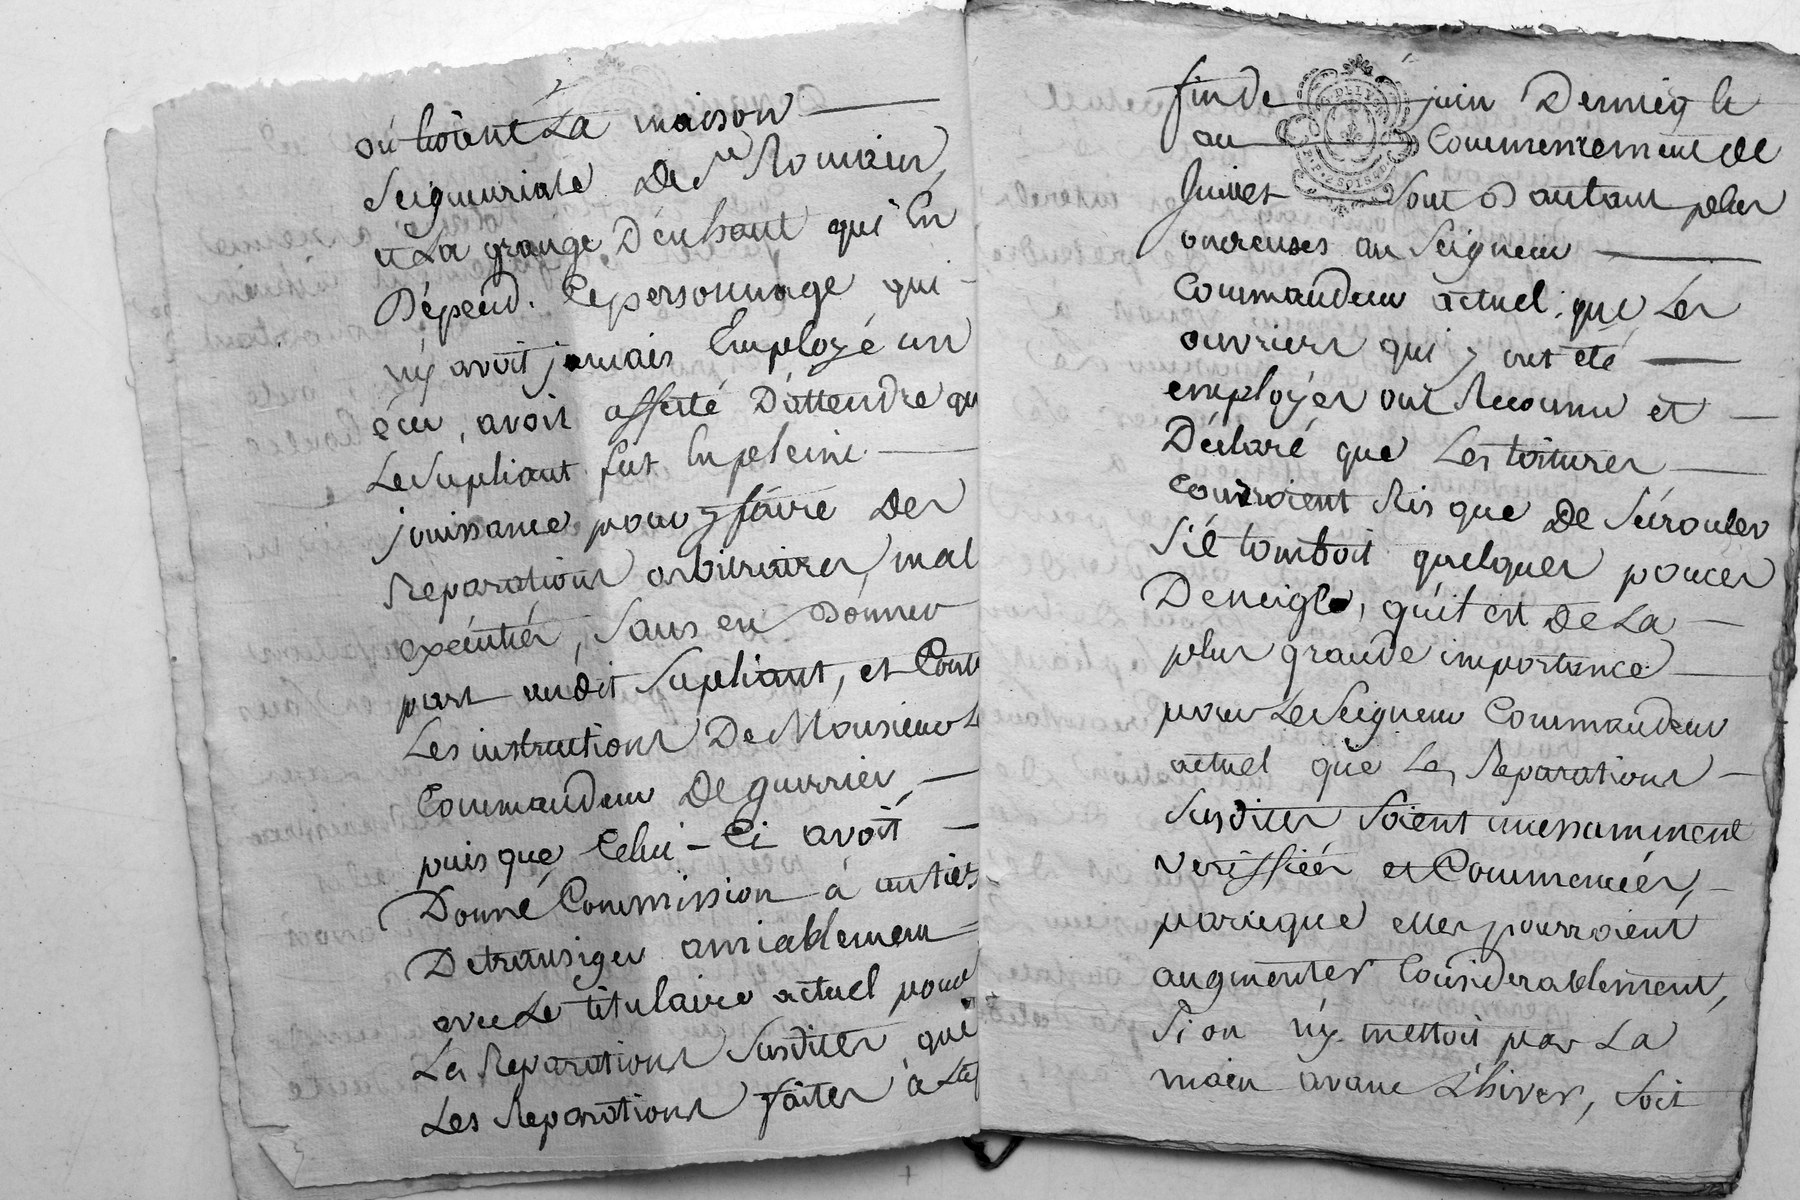 où étoient La maison
Seigneuriale De St Romain,
et La grange D'enhaut qui En
Dépend. Ce personnage qui
n'y avoit jamais Employé un
écu, avoit affecté D'attendre qu
Le Supliant fut En pleine
jouissance pour y faire Des
Reparations arbitraires, mal
exécutées, Sans en Donner
part audit Supliant, et Cont
Les instructions De Monsieur L
Commandeur De
puis que Celui-Ci avoit
Donné Commission à un tiers
De transiger amiablement
avec Le titulaire actuel pour
Les Reparations Susdites, que
Les Reparations faites à La
fin de juin Dernier Et
au Commencement De
Juillet Sont D'autant plus
onereuses au Seigneur
Commandeur actuel, que Les
ouvriers qui y ont été
employés ont Reconnu et
Déclaré que Les toitures
Couroient Risque De S'écrouler
S'il tomboit quelques pouces
De neige, qu'il est De La
plus grande importance
pour Le Seigneur Commandeur
actuel que Les Reparations
Susdites Soient incessamment
veriffiées et Commencées,
parceque elles pourroient
augmenter Considerablement,
Si on n'y mettoit pas La
main avant L'hiver, Soit